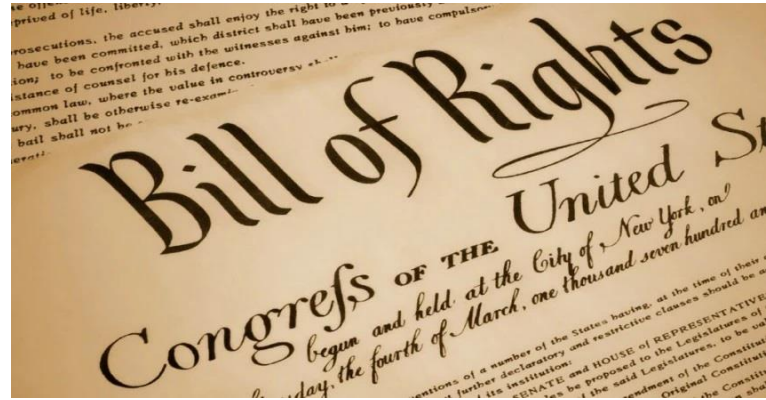 prived of life, liberty,
rosecutions, the accused shall enjoy the right to
have been committed, which district shall have been previously
ion; to be confronted with the witnesses against him; to have compulsor
istance of counsel for his defence.
ommon law, where the value in controversy
ury, shall be otherwise re-exami
bail shall not be
Bill of Rights
Congreſs OF THE United St
begun and held at the City of New York, on
the fourth of March, one thousand seven hundred an
entions of a number of the States having, at the time of their
further declaratory and restrictive clauses should be a
its institution:
SENATE and HOUSE of REPRESENTATIVE
be proposed to the Legislatures of
the said Legislatures, to be va
endment of the Constitut
Original Constituti
the Constitu